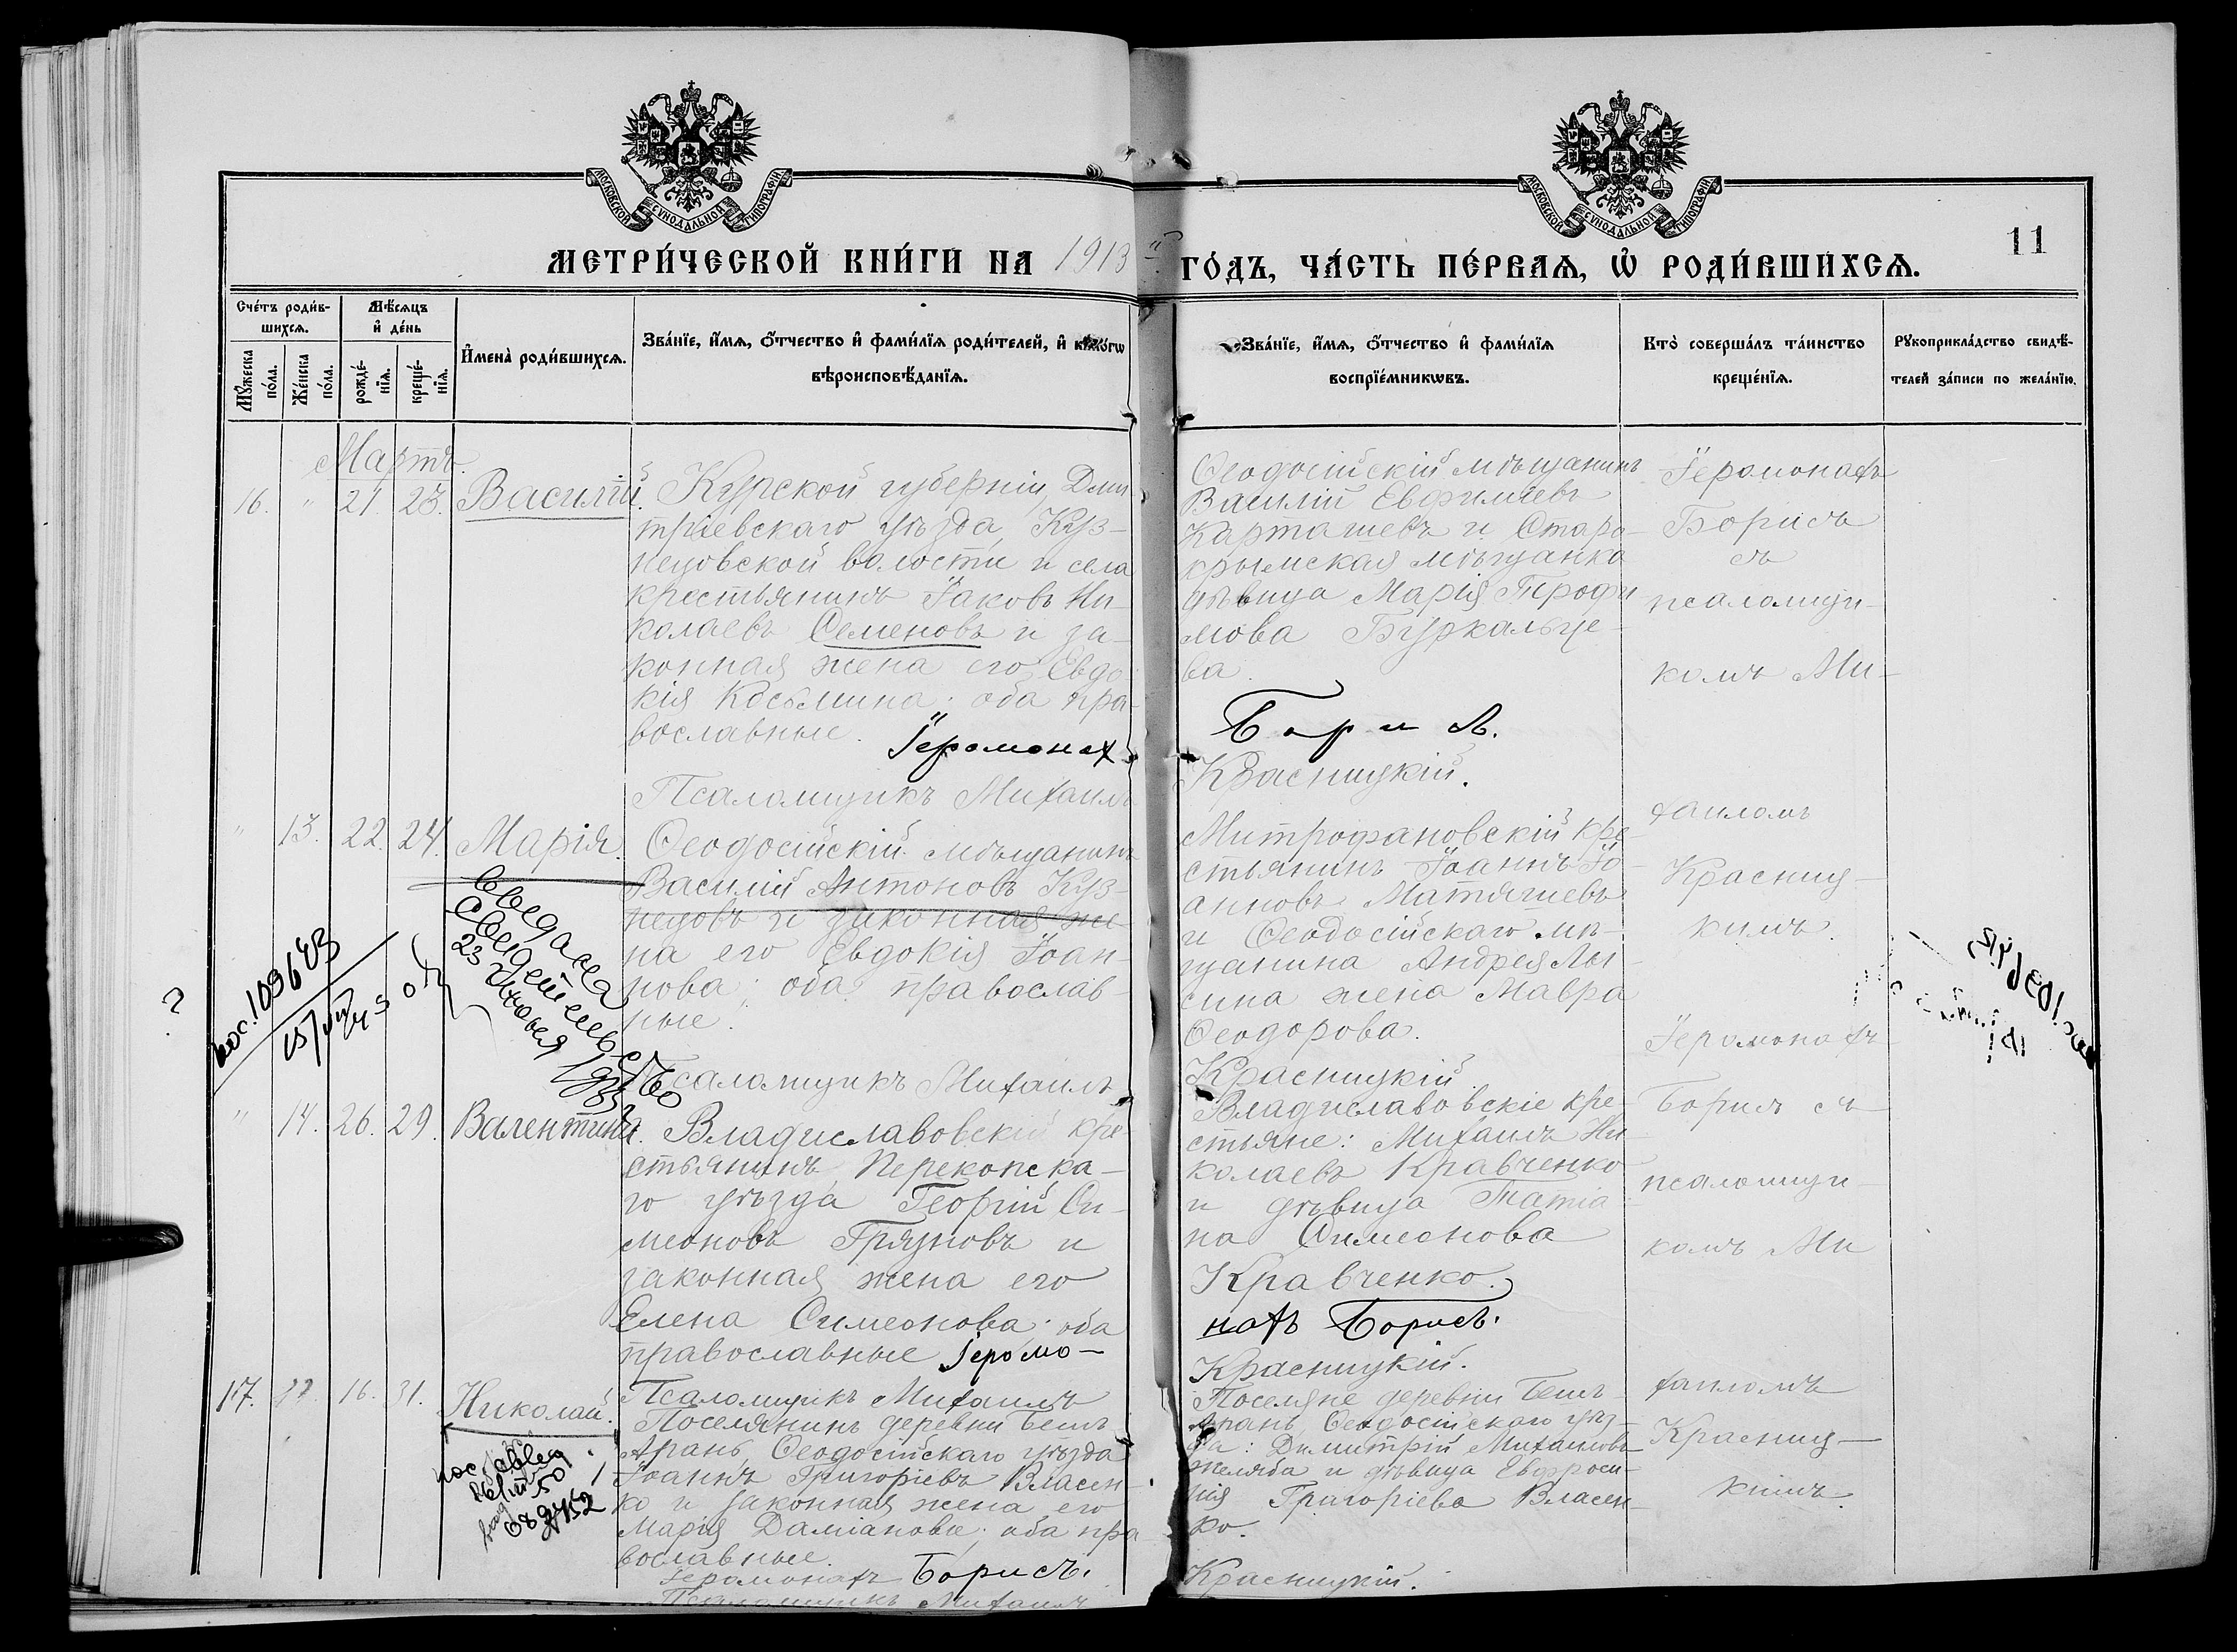 МОСКОВСКОЙ СѴНОДАЛЬНОЙ ТИПОГРАФІИ
МОСКОВСКОЙ СѴНОДАЛЬНОЙ ТИПОГРАФІИ
МЕТРИ́ЧЕСКОЙ КНИ́ГИ НА 1913 й ГО́ДЪ, ЧА́СТЬ ПЕ́РВАѦ, Ѡ҆ РОДИ́ВШИХСѦ.
11
Сче́тъ роди́в-
шихсѧ.
Мꙋ́жеска
по́ла.
Же́нска
по́ла.
Мѣ́сѧцъ
и҆ де́нь
рожде́-
нїѧ.
креще́-
нїѧ.
И҆мена̀ роди́вшихсѧ.
Зва́нїе, и҆́мѧ, ѻ҆́тчество и҆ фами́лїѧ роди́телей, и҆
вѣроисповѣ́данїѧ.
Зва́нїе, и҆́мѧ, ѻ҆́тчество и҆ фами́лїѧ
воспрїе́мникѡвъ.
Кто̀ соверша́лъ та́инство
креще́нїѧ.
Рꙋкоприкла́дство свидѣ́-
телей за́писи по жела́нїю.
Мартъ.
16. " 21. 23. Василій.
Курской губерніи, Дми
тріевскаго уѣзда, Куз-
нецовской волости и села
крестьянинъ Іаковъ Ни-
колаевъ Семеновъ и за-
конная жена его Евдо
кія Косьмина; оба пра-
вославные. Іеромонах
Псаломщикъ Михаилъ
Ѳеодосійскій мѣщанинъ
Василій Евфиміевъ
Карташевъ и Старо-
крымская мѣщанка
дѣвица Марія Трофи
мова Буркальце-
ва.
Борисъ.
Красницкій.
Іеромонахъ
Борисъ
съ
псаломщи-
комъ Ми-
хаиломъ
Красниц-
кимъ.
" 13. 22. 24. Марія.
Ѳеодосійскій мѣщанинъ
Василій Антоновъ Куз-
нецовъ и законная же-
на его Евдокія Іоан-
нова; оба православ-
ные.
Псаломщикъ Михаилъ
Митрофановскій кре-
стьянинъ Іоаннъ Іо-
анновъ Матяшевъ
и Ѳеодосійскаго мѣ-
щанина Андрея Лы-
сина жена Мавра
Ѳеодорова.
Красницкій.
?
109643
" 14. 26. 29. Валентина.
Владиславовскій кре-
стьянинъ, Перекопска-
го уѣзда Георгій Си-
меоновъ Грязновъ и
законная жена его
Елена Симеонова; оба
православные Іеромо-
Псаломщикъ Михаилъ
Владиславовскіе кре-
стьяне: Михаилъ Ни-
колаевъ Кравченко
и дѣвица Татіа
на Симеонова
Кравченко.
нахъ Борисъ.
Красницкій.
Іеромонахъ
Борисъ съ
псаломщи-
комъ Ми
хаиломъ
Красниц-
кимъ.
17. " 16. 31. Николай.
Поселянинъ деревни Бешъ
Аранъ, Ѳеодосійскаго уѣзда
Іоаннъ Григоріевъ Власен-
ко и законная жена его
Марія Даміанова; оба пра
вославные.
Іеромонахъ Борисъ.
Псаломщикъ Михаилъ
Поселяне деревни Бешъ-
Аранъ, Ѳеодосійскаго уѣз-
да: Димитрій Михаиловъ
Желяба и дѣвица Евфроси-
нія Григоріева Власен-
ко.
Красницкій.